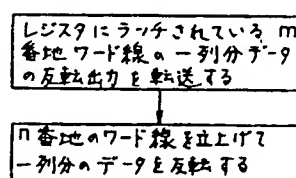 レジスタにラッチされている m
番地ワード線の一列分データ
の反転出力を転送する
n番地のワード線を立上げて
一列分のデータを反転する